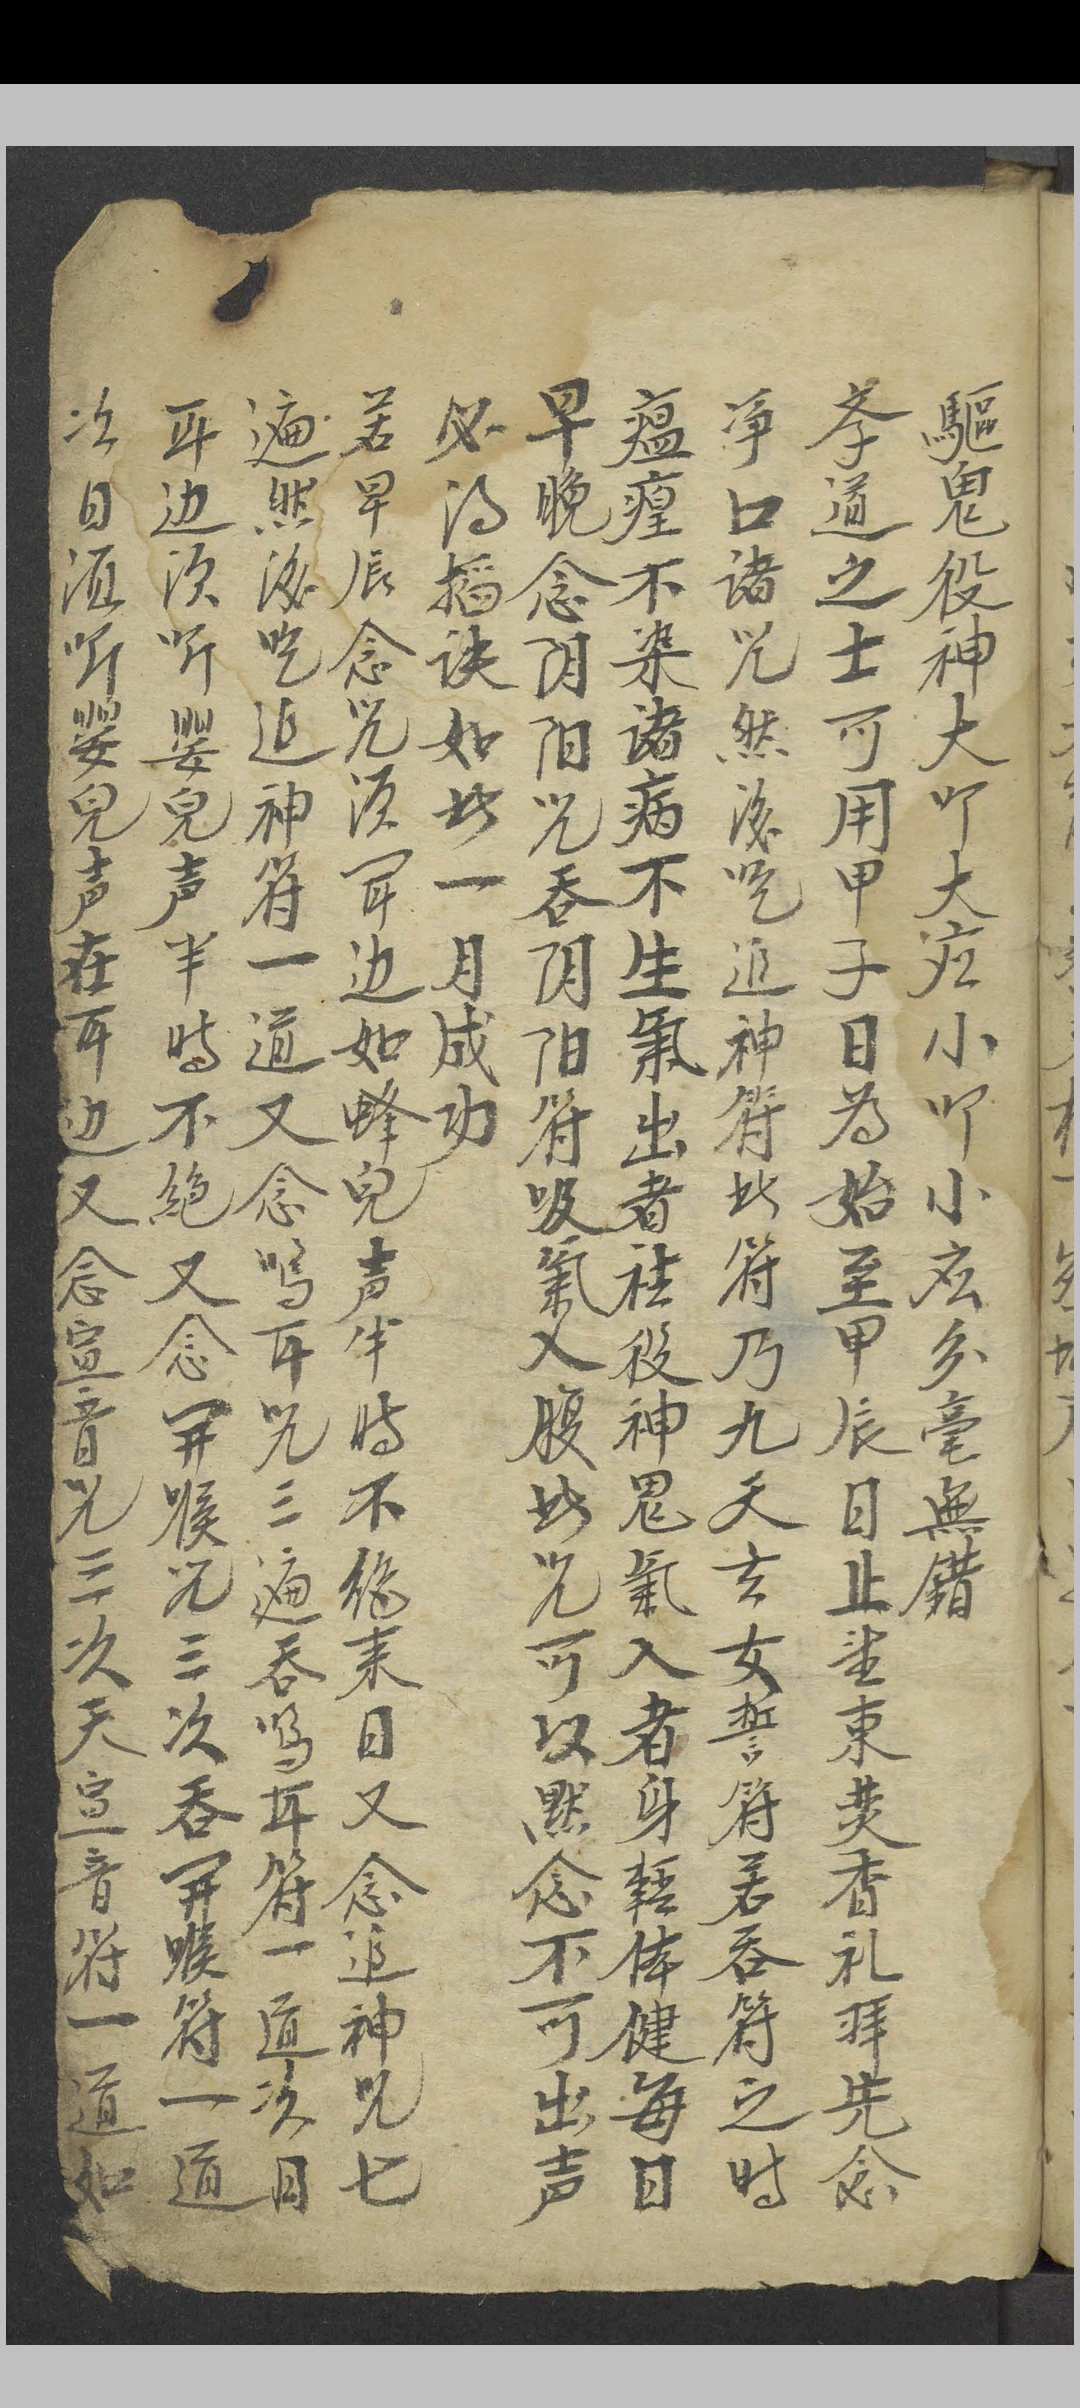 驅鬼役神大叩大应小叩小应分毫無錯
孝道之士可用甲子日為始至甲辰日止望東焚香礼拜先念
净口諸咒然後吃追神符此符乃九天玄女誓符若吞符之時
瘟瘽不染諸病不生氣出者祛役神鬼氣入者身輕体健每日
早晚念阴阳咒吞阴阳符吸氣入腹此咒可以默念不可出声
必得搯诀如此一月成功
若早辰念咒须耳边如蜂兒声半時不絕来日又念追神咒七
遍然後吃追神符一道又念鸣耳咒三遍吞鸣耳符一道次日
耳边须听嬰兒声半時不絕又念開喉咒三次吞開喉符一道
次日須听嬰兒声在耳边又念宣音咒三次天宣音符一道如